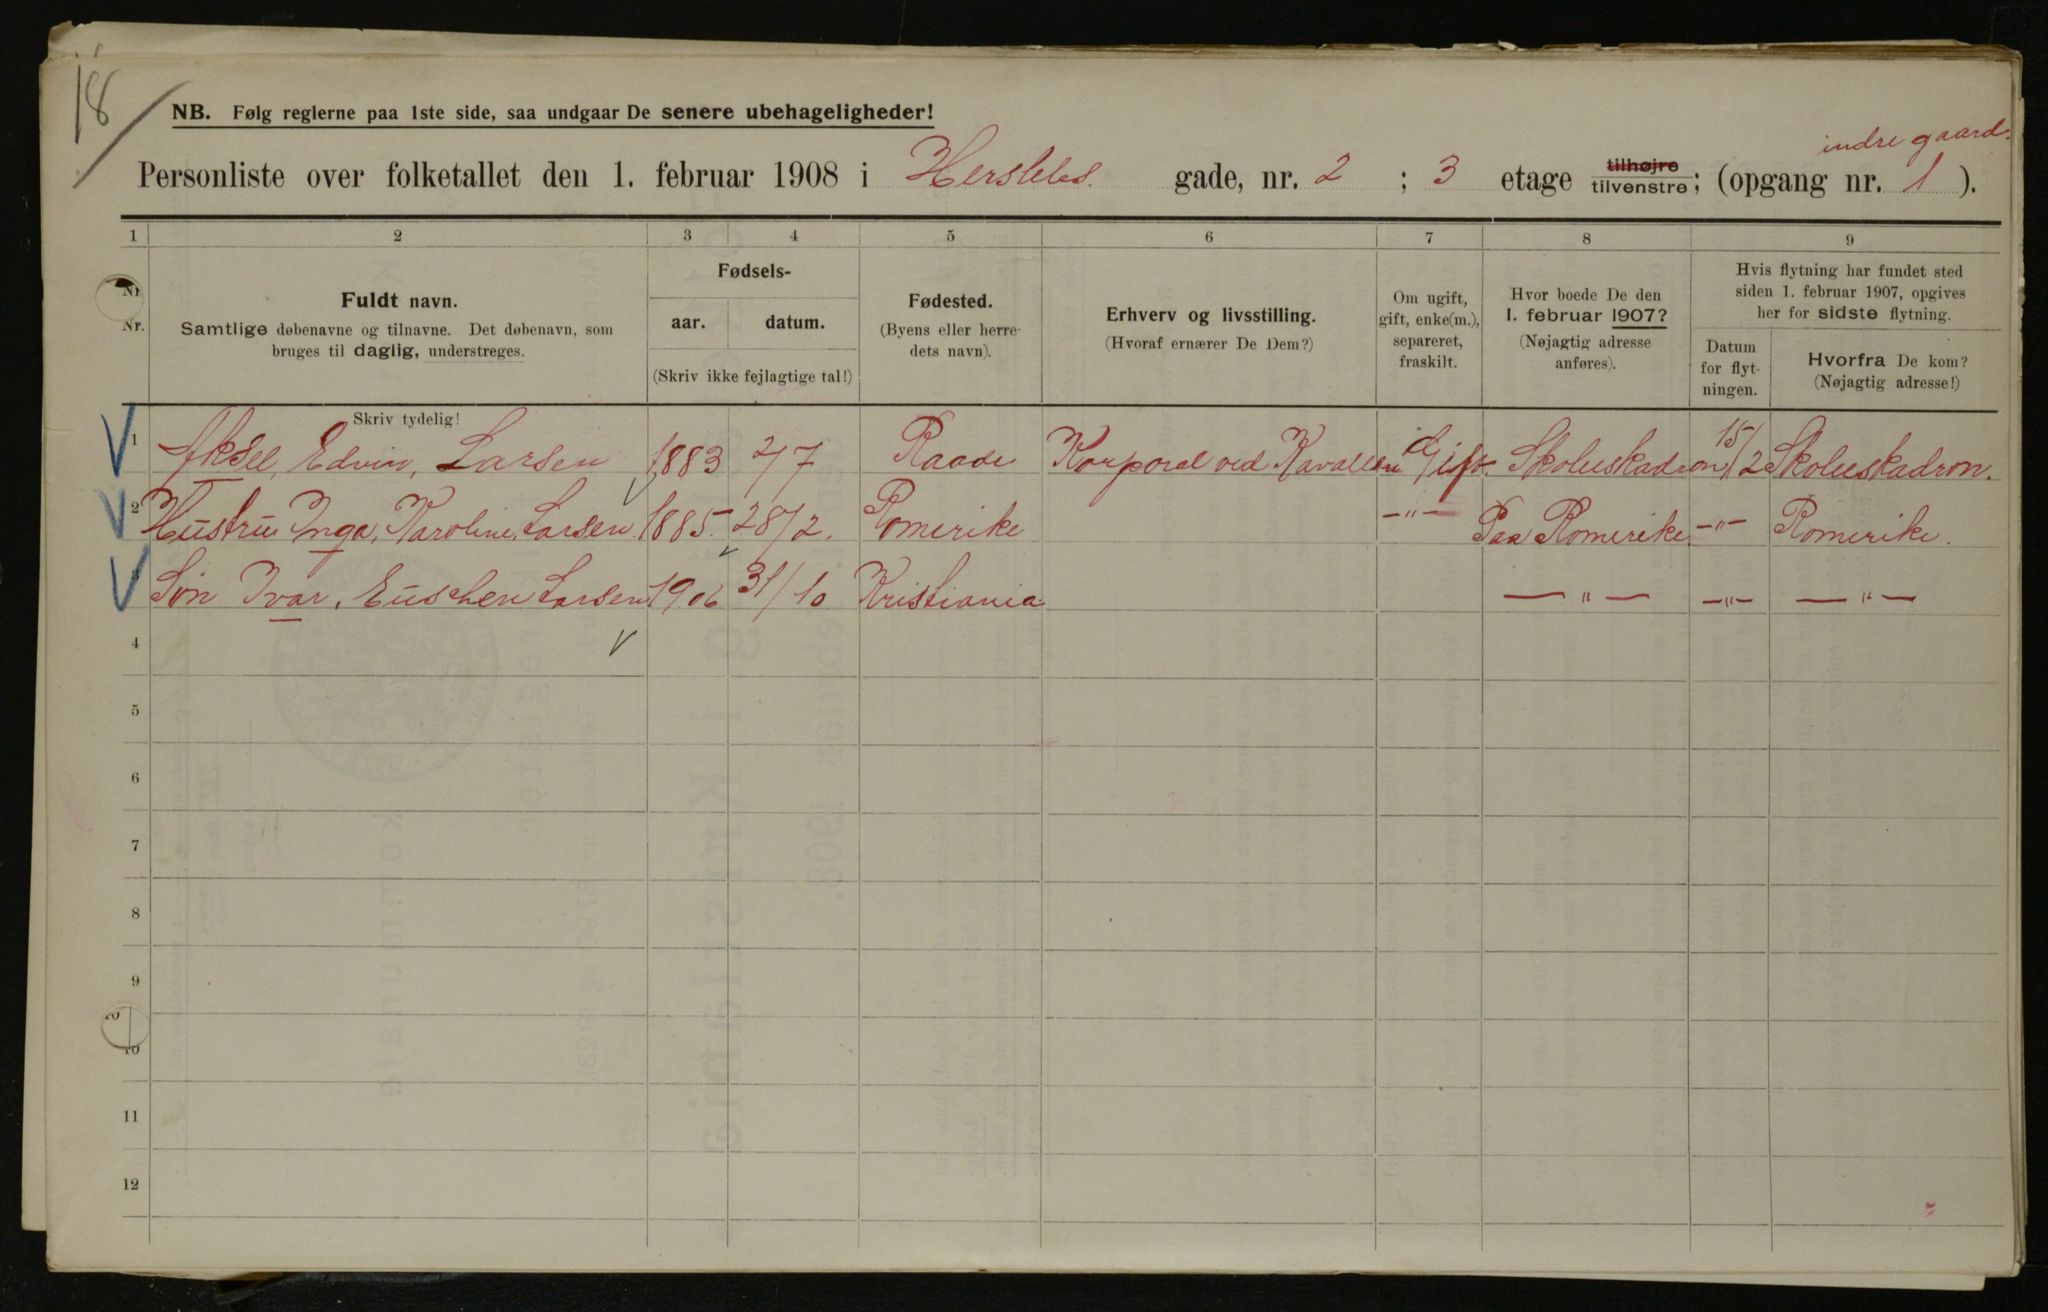 18
NB. Følg reglerne paa 1ste side, saa undgaar De senere ubehageligheder!
indre gaard.
Personliste over folketallet den 1. februar 1908 i Herslebs. gade, nr. 2 ; 3 etage tilhøjre tilvenstre; (opgang nr. 1 ).
1 2 3 4 5 6 7 8 9
Nr. Fuldt navn. Samtlige døbenavne og tilnavne. Det døbenavn, som bruges til daglig, understreges.
Fødsels- aar. datum. (Skriv ikke fejlagtige tal!)
Fødested. (Byens eller herredets navn).
Erhverv og livsstilling. (Hvoraf ernærer De Dem?)
Om ugift, gift, enke(m.), separeret, fraskilt.
Hvor boede De den 1. februar 1907? (Nøjagtig adresse anføres).
Hvis flytning har fundet sted siden 1. februar 1907, opgives her for sidste flytning.
Datum for flytningen. Hvorfra De kom? (Nøjagtig adresse!)
Skriv tydelig!
1 Aksel, Edvin, Larsen 1883 2/7 Raade Korporal ved Kavalleri Gift. Skoleeskadron 15/2 Skoleeskadron.
2 Hustru Inga, Karoline, Larsen 1885 28/2. Romerike -"- Paa Romerike -"- Romerike.
Søn Ivar, Larsen 1906 31/10 Kristiania -"- -"- -"-
4
5
6
7
8
9
10
11
12